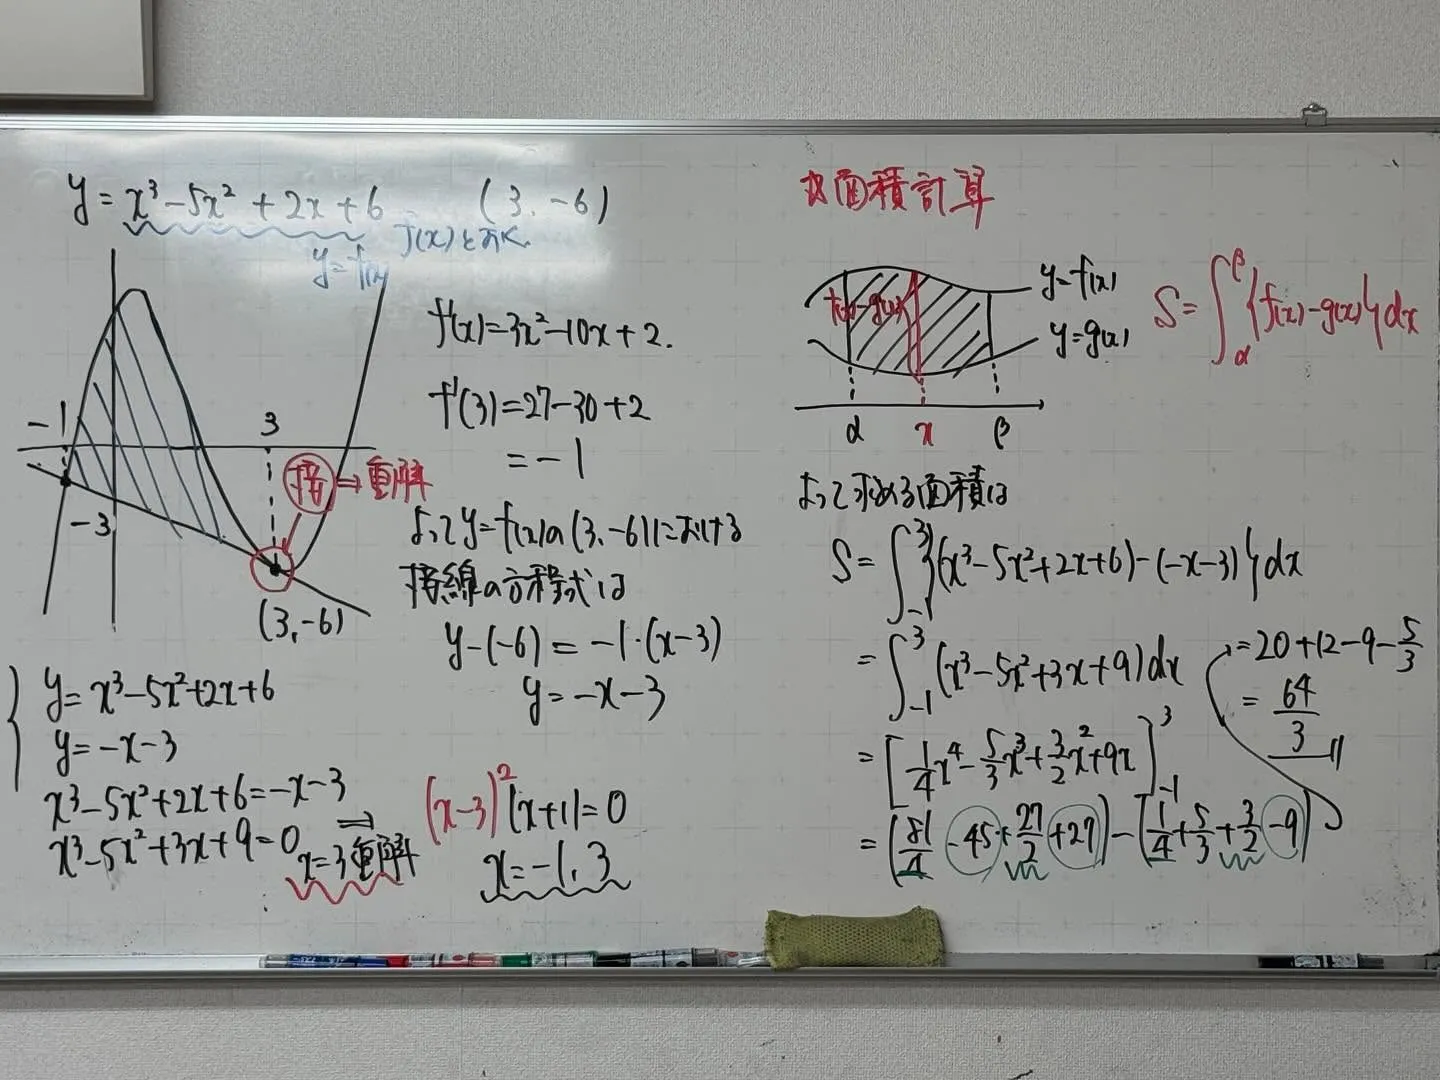 y=x³-5x²+2x+6 (3,-6)
f(x)とおく
y=f(x)
-1
3
-3
接⇒重解
(3,-6)
f'(x)=3x²-10x+2.
f'(3)=27-30+2
=-1
よってy=f(x)の(3,-6)における
接線の方程式は
y-(-6)=-1・(x-3)
y=-x-3
y=x³-5x²+2x+6
y=-x-3
x³-5x²+2x+6=-x-3
x³-5x²+3x+9=0
⇒
x=3重解
(x-3)²(x+1)=0
x=-1,3
面積計算
f(x)-g(x)
y=f(x)
y=g(x)
α x β
S=∫_α^β{f(x)-g(x)}dx
よって求める面積は
S=∫_{-1}^{3}{(x³-5x²+2x+6)-(-x-3)}dx
=∫_{-1}^{3}(x³-5x²+3x+9)dx
=[1/4x⁴-5/3x³+3/2x²+9x]_{-1}^{3}
=(81/4-45+27/2+27)-(1/4+5/3+3/2-9)
=20+12-9-5/3
=64/3